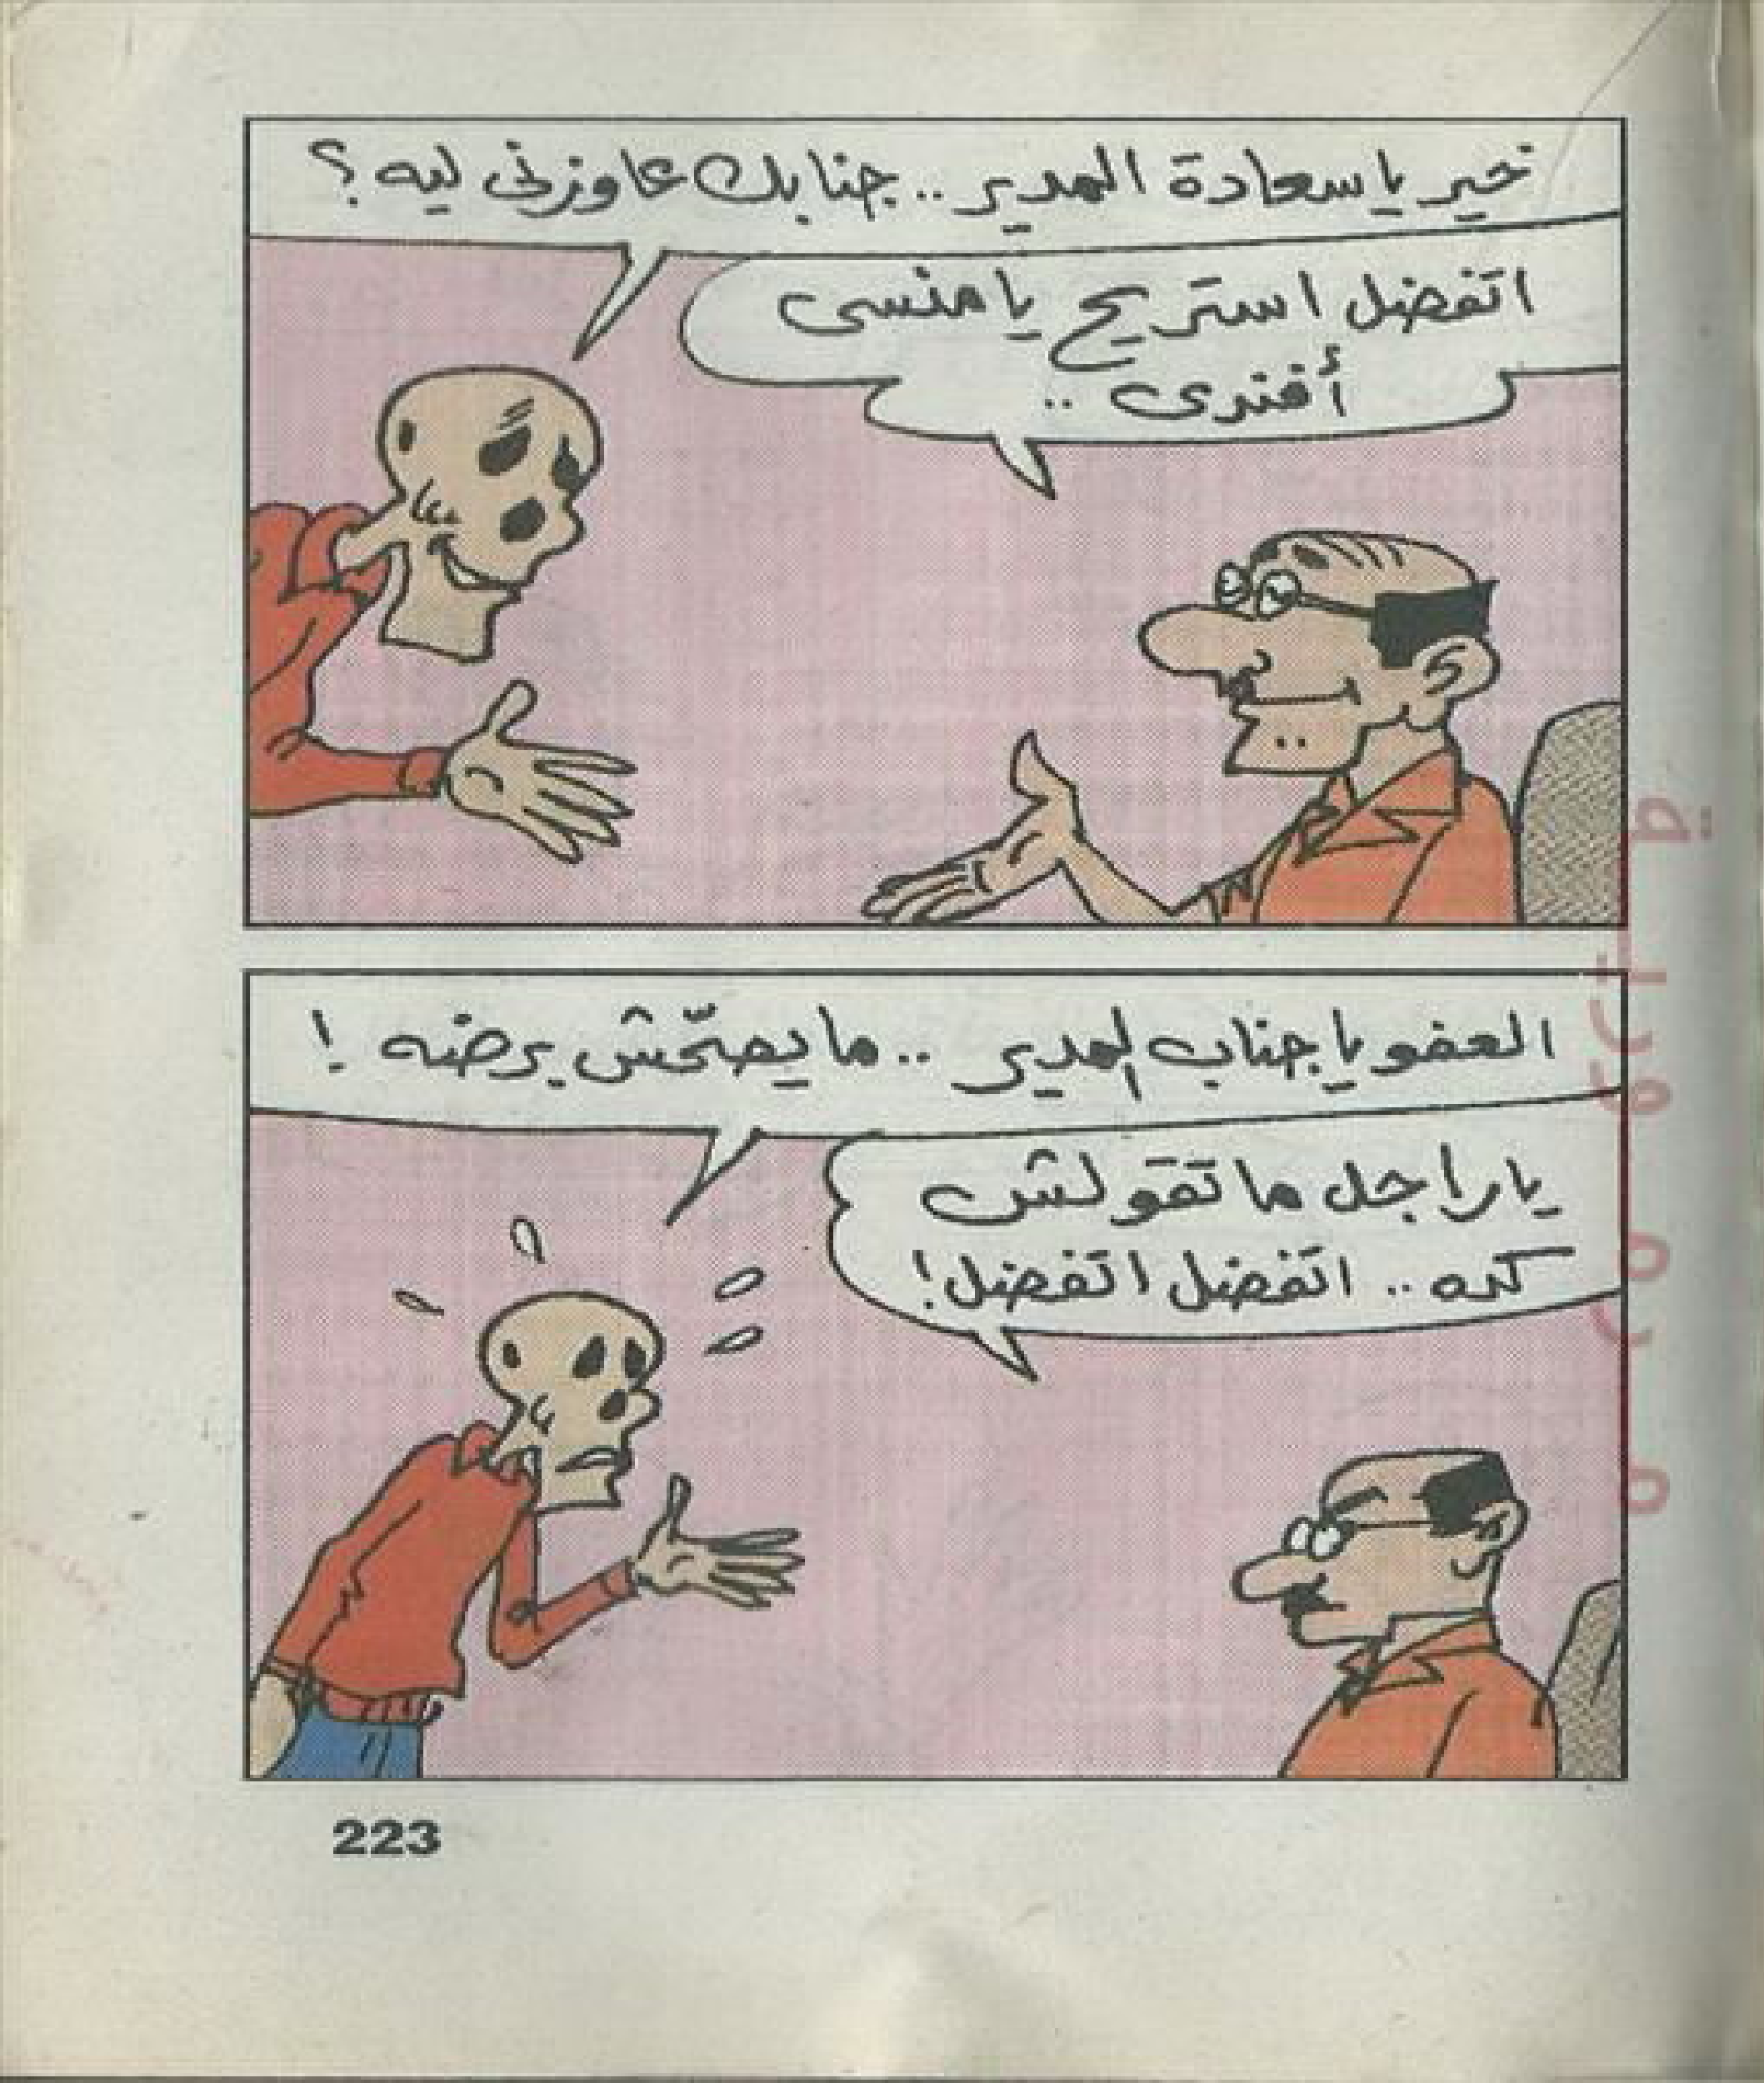 خير يا سعادة المدير .. جنابك عاوزنى ليه ؟
اتفضل استريح يا منسى
أفندى ..
العفو يا جناب المدير .. ما يصحّش برضه !
يا راجل ما تقولش
كده .. اتفضل اتفضل !
223